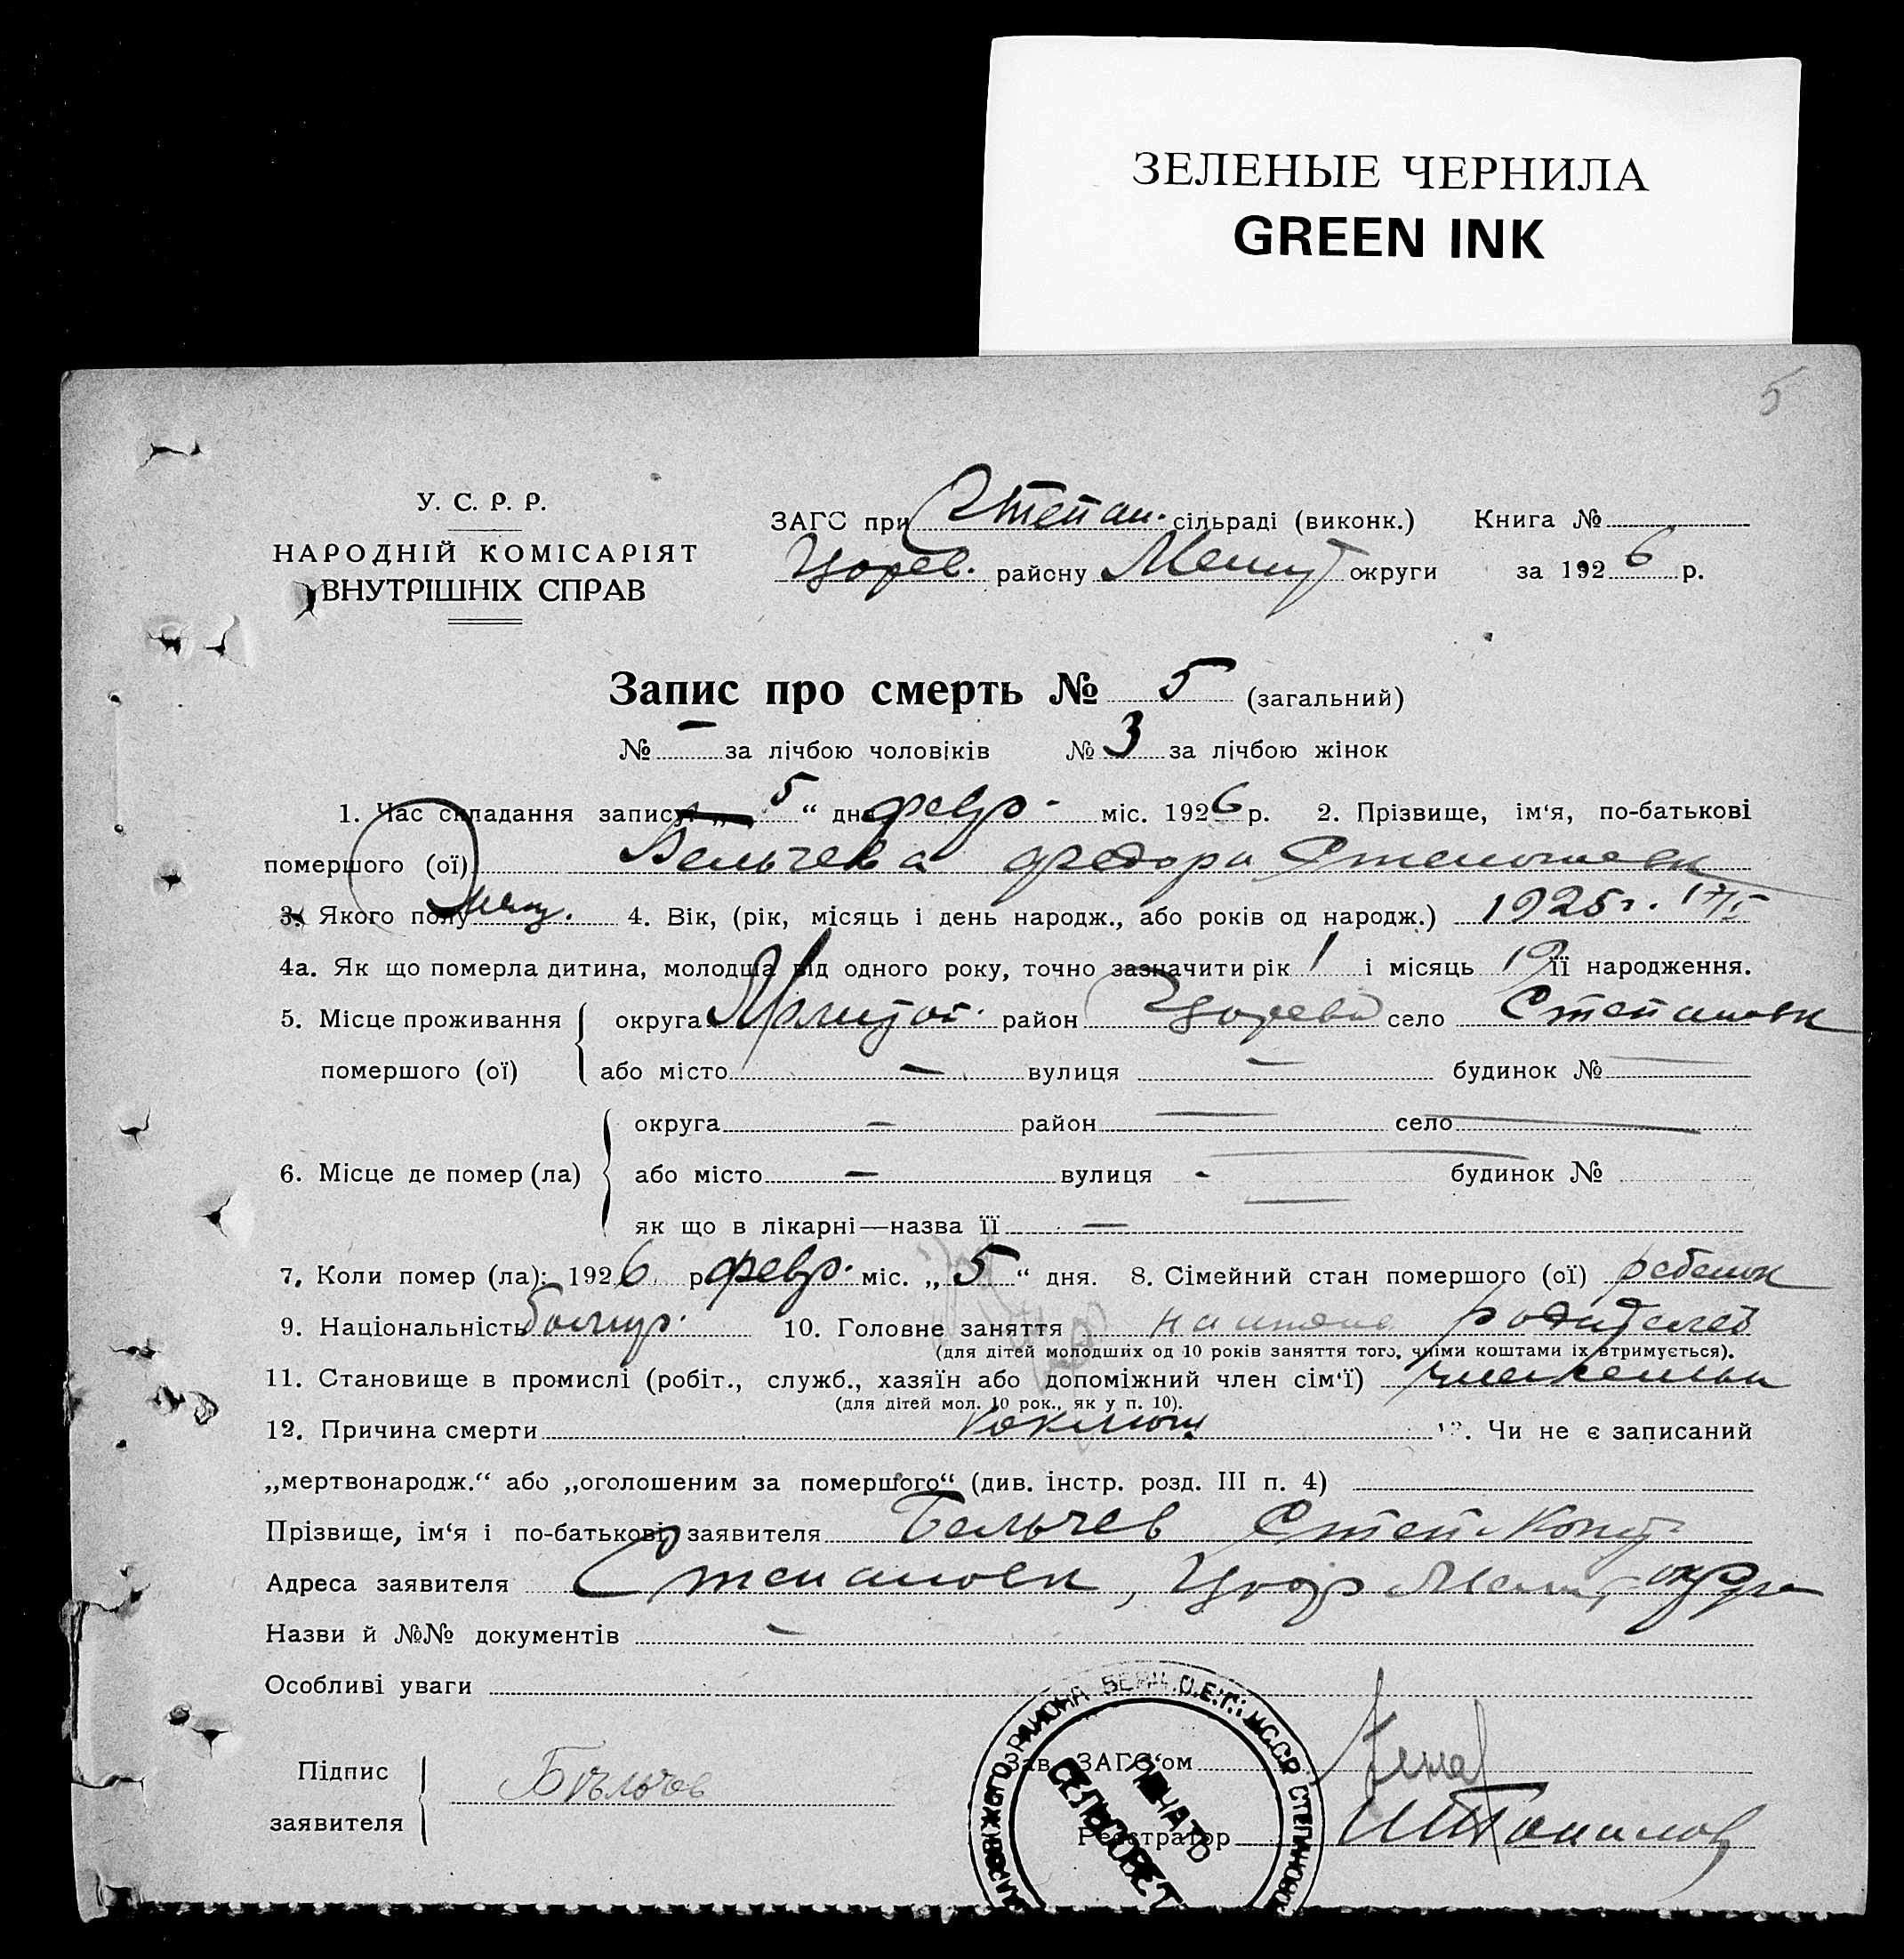 ЗЕЛЕНЫЕ ЧЕРНИЛА
GREEN INK
5
У. С. Р. Р.
НАРОДНІЙ КОМІСАРІЯТ
ВНУТРІШНІХ СПРАВ
ЗАГС при Степан. сільраді (виконк.) Книга №
Цорев. району округи за 1926 р.
Запис про смерть № 5 (загальний)
№ — за лічбою чоловіків № 3 за лічбою жінок
1. Час складання запису: „ 5 “ дня февр. міс. 1926 р. 2. Прізвище, ім‘я, по-батькові
помершого (ої) Бельчева Федора
3. Якого полу 4. Вік, (рік, місяць і день народж., або років од народж.) 1925 г.
4а. Як що померла дитина, молодша від одного року, точно зазначити рік 1 і місяць її народження.
5. Місце проживання округа район село Степановк
помершого (ої) або місто — вулиця — будинок № —
округа — район — село —
6. Місце де помер (ла) або місто — вулиця - будинок №
як що в лікарні—назва її —
7. Коли помер (ла): 1926 р. февр. міс. „ 5 “ дня. 8. Сімейний стан помершого (ої) ребенок
9. Національність болгар. 10. Головне заняття родителей
(для дітей молодших од 10 років заняття того, чиїми коштами їх втримується).
11. Становище в промислі (робіт., служб., хазяїн або допоміжний член сім‘ї)
(для дітей мол. 10 рок., як у п. 10).
12. Причина смерти коклюш 13. Чи не є записаний
„мертвонародж.“ або „оголошеним за помершого“ (див. інстр. розд. III п. 4)
Прізвище, ім‘я і по-батькові заявителя Бельчев Степ.
Адреса заявителя Степановк, округа
Назви й №№ документів —
Особливі уваги
Підпис
заявителя Бѣльчев
Зав. ЗАГС‘ом
Реєстратор
РАЙОНА БЕРД. О. Е. Г. УССР СТЕПАНОВС
СЕЛЬСОВЕТ